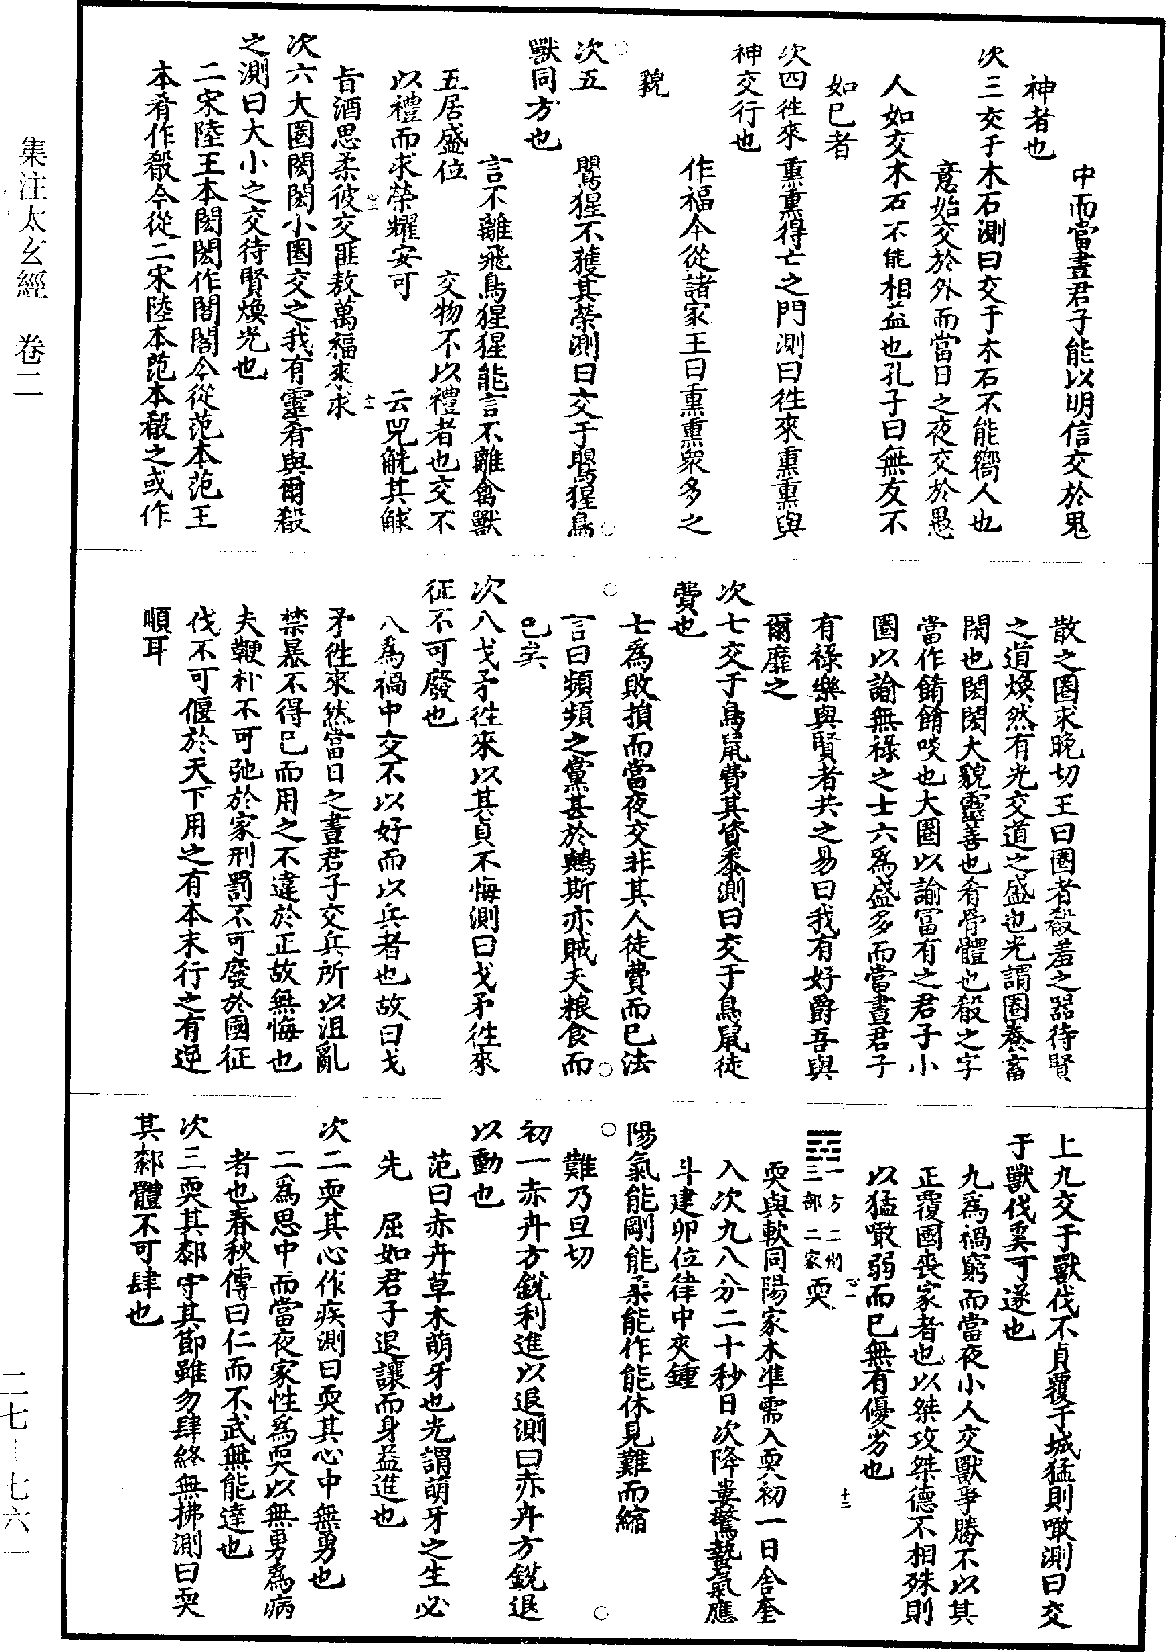 集注太玄經 卷二
二七—七六一
中而當晝君子能以明信交於鬼
神者也
次三交于木石測曰交于木石不能嚮人也
意始交於外而當日之夜交於愚
人如交木石不能相益也孔子曰無友不
如已者
次四往來熏熏得亡之門測曰往來熏熏與
神交行也
作福今從諸家王曰熏熏衆多之
貌
次五
鸎猩不獲其榮測曰交于鸎猩鳥
獸同方也
言不離飛鳥猩猩能言不離禽獸
五居盛位
交物不以禮者也交不
以禮而求榮耀安可
云兕觥其觩
旨酒思柔彼交匪敖萬福來求
次六大圈閎閎小圈交之我有靈肴與爾殽
之測曰大小之交待賢煥光也
二宋陸王本閎閎作閤閤今從范本范王
本肴作殽今從二宋陸本范本殽之或作
散之圈求晚切王曰圈者殽羞之器待賢
之道煥然有光交道之盛也光謂圈養畜
閑也閎閎大貌靈善也肴骨體也殽之字
當作餚餚啖也大圈以諭富有之君子小
圈以諭無祿之士六爲盛多而當晝君子
有祿樂與賢者共之易曰我有好爵吾與
爾靡之
次七交于鳥鼠費其資黍測曰交于鳥鼠徒
費也
七爲敗損而當夜交非其人徒費而已法
言曰頻頻之黨甚於鵯斯亦賊夫粮食而
已矣
次八戈矛往來以其貞不悔測曰戈矛往來
征不可廢也
八爲禍中交不以好而以兵者也故曰戈
矛往來然當日之晝君子交兵所以沮亂
禁暴不得已而用之不違於正故無悔也
夫鞭朴不可弛於家刑罰不可廢於國征
伐不可偃於天下用之有本末行之有逆
順耳
上九交于獸伐不貞覆于城猛則噉測曰交
于獸伐奚可遂也
九爲禍窮而當夜小人交獸爭勝不以其
正覆國喪家者也以桀攻桀德不相殊則
以猛噉弱而已無有優劣也
一方二州
三部二家耎
耎與軟同陽家木準需入耎初一日舍奎
入次九八分二十秒日次降婁驚蟄氣應
斗建卯位律中夾鍾
陽氣能剛能柔能作能休見難而縮
難乃旦切
初一赤卉方銳利進以退測曰赤卉方銳退
以動也
范曰赤卉草木萌牙也光謂萌牙之生必
先 屈如君子退讓而身益進也
次二耎其心作疾測曰耎其心中無勇也
二爲思中而當夜家性爲耎以無勇爲病
者也春秋傳曰仁而不武無能達也
次三耎其郄守其節雖勿肆終無拂測曰耎
其郄體不可肆也